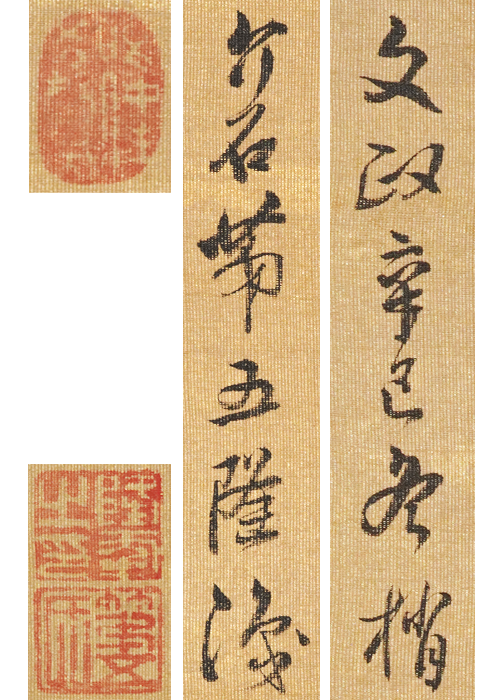 文政辛巳冬梢
介石第五隆識